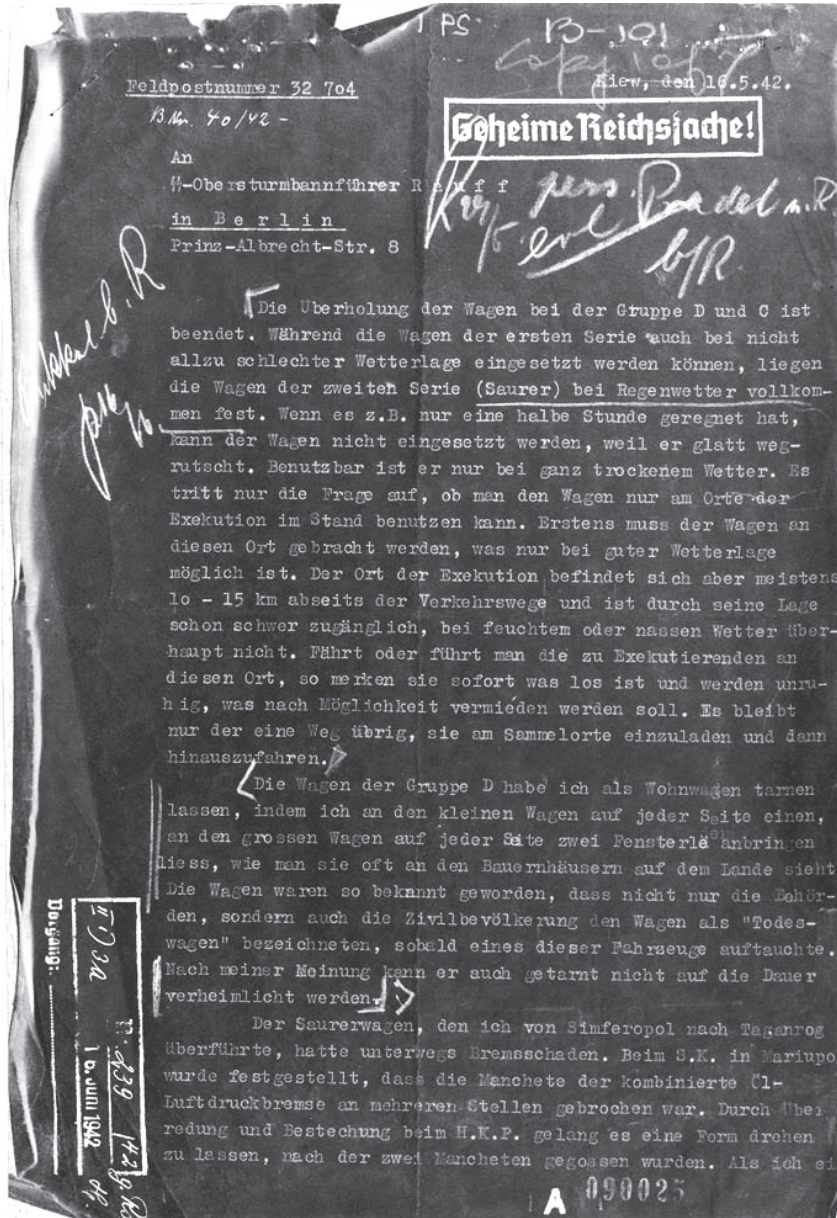 PS
B-101
Copy 1 of 7
Feldpostnummer 32 7o4
Kiew, den 16.5.42.
B.Nr. 40/42 -
Geheime Reichssache!
An
SS-Obersturmbannführer R a u f f
in B e r l i n
Prinz-Albrecht-Str. 8
pers. Pradel n.R
b/R
Die Überholung der Wagen bei der Gruppe D und C ist
beendet. Während die Wagen der ersten Serie auch bei nicht
allzu schlechter Wetterlage eingesetzt werden können, liegen
die Wagen der zweiten Serie (Saurer) bei Regenwetter vollkom-
men fest. Wenn es z.B. nur eine halbe Stunde geregnet hat,
kann der Wagen nicht eingesetzt werden, weil er glatt weg-
rutscht. Benutzbar ist er nur bei ganz trockenem Wetter. Es
tritt nur die Frage auf, ob man den Wagen nur am Orte der
Exekution im Stand benutzen kann. Erstens muss der Wagen an
diesen Ort gebracht werden, was nur bei guter Wetterlage
möglich ist. Der Ort der Exekution befindet sich aber meistens
1o - 15 km abseits der Verkehrswege und ist durch seine Lage
schon schwer zugänglich, bei feuchtem oder nassen Wetter über-
haupt nicht. Fährt oder führt man die zu Exekutierenden an
diesen Ort, so merken sie sofort was los ist und werden unru-
hig, was nach Möglichkeit vermieden werden soll. Es bleibt
nur der eine Weg übrig, sie am Sammelorte einzuladen und dann
hinauszufahren.
Die Wagen der Gruppe D habe ich als Wohnwagen tarnen
lassen, indem ich an den kleinen Wagen auf jeder Seite einen,
an den grossen Wagen auf jeder Seite zwei Fensterläden anbringen
liess, wie man sie oft an den Bauernhäusern auf dem Lande sieht
Die Wagen waren so bekannt geworden, dass nicht nur die Behör-
den, sondern auch die Zivilbevölkerung den Wagen als "Todes-
wagen" bezeichneten, sobald eines dieser Fahrzeuge auftauchte.
Nach meiner Meinung kann er auch getarnt nicht auf die Dauer
verheimlicht werden.
Der Saurerwagen, den ich von Simferopol nach Taganrog
überführte, hatte unterwegs Bremsschaden. Beim S.K. in Mariupo
wurde festgestellt, dass die Manchete der kombinierte Öl-
Luftdruckbremse an mehreren Stellen gebrochen war. Durch Über
redung und Bestechung beim H.K.P. gelang es eine Form drehen
zu lassen, nach der zwei Mancheten gegossen wurden. Als ich ei
A 090025
II D 3a
Vorgang:
16. Juni 1942